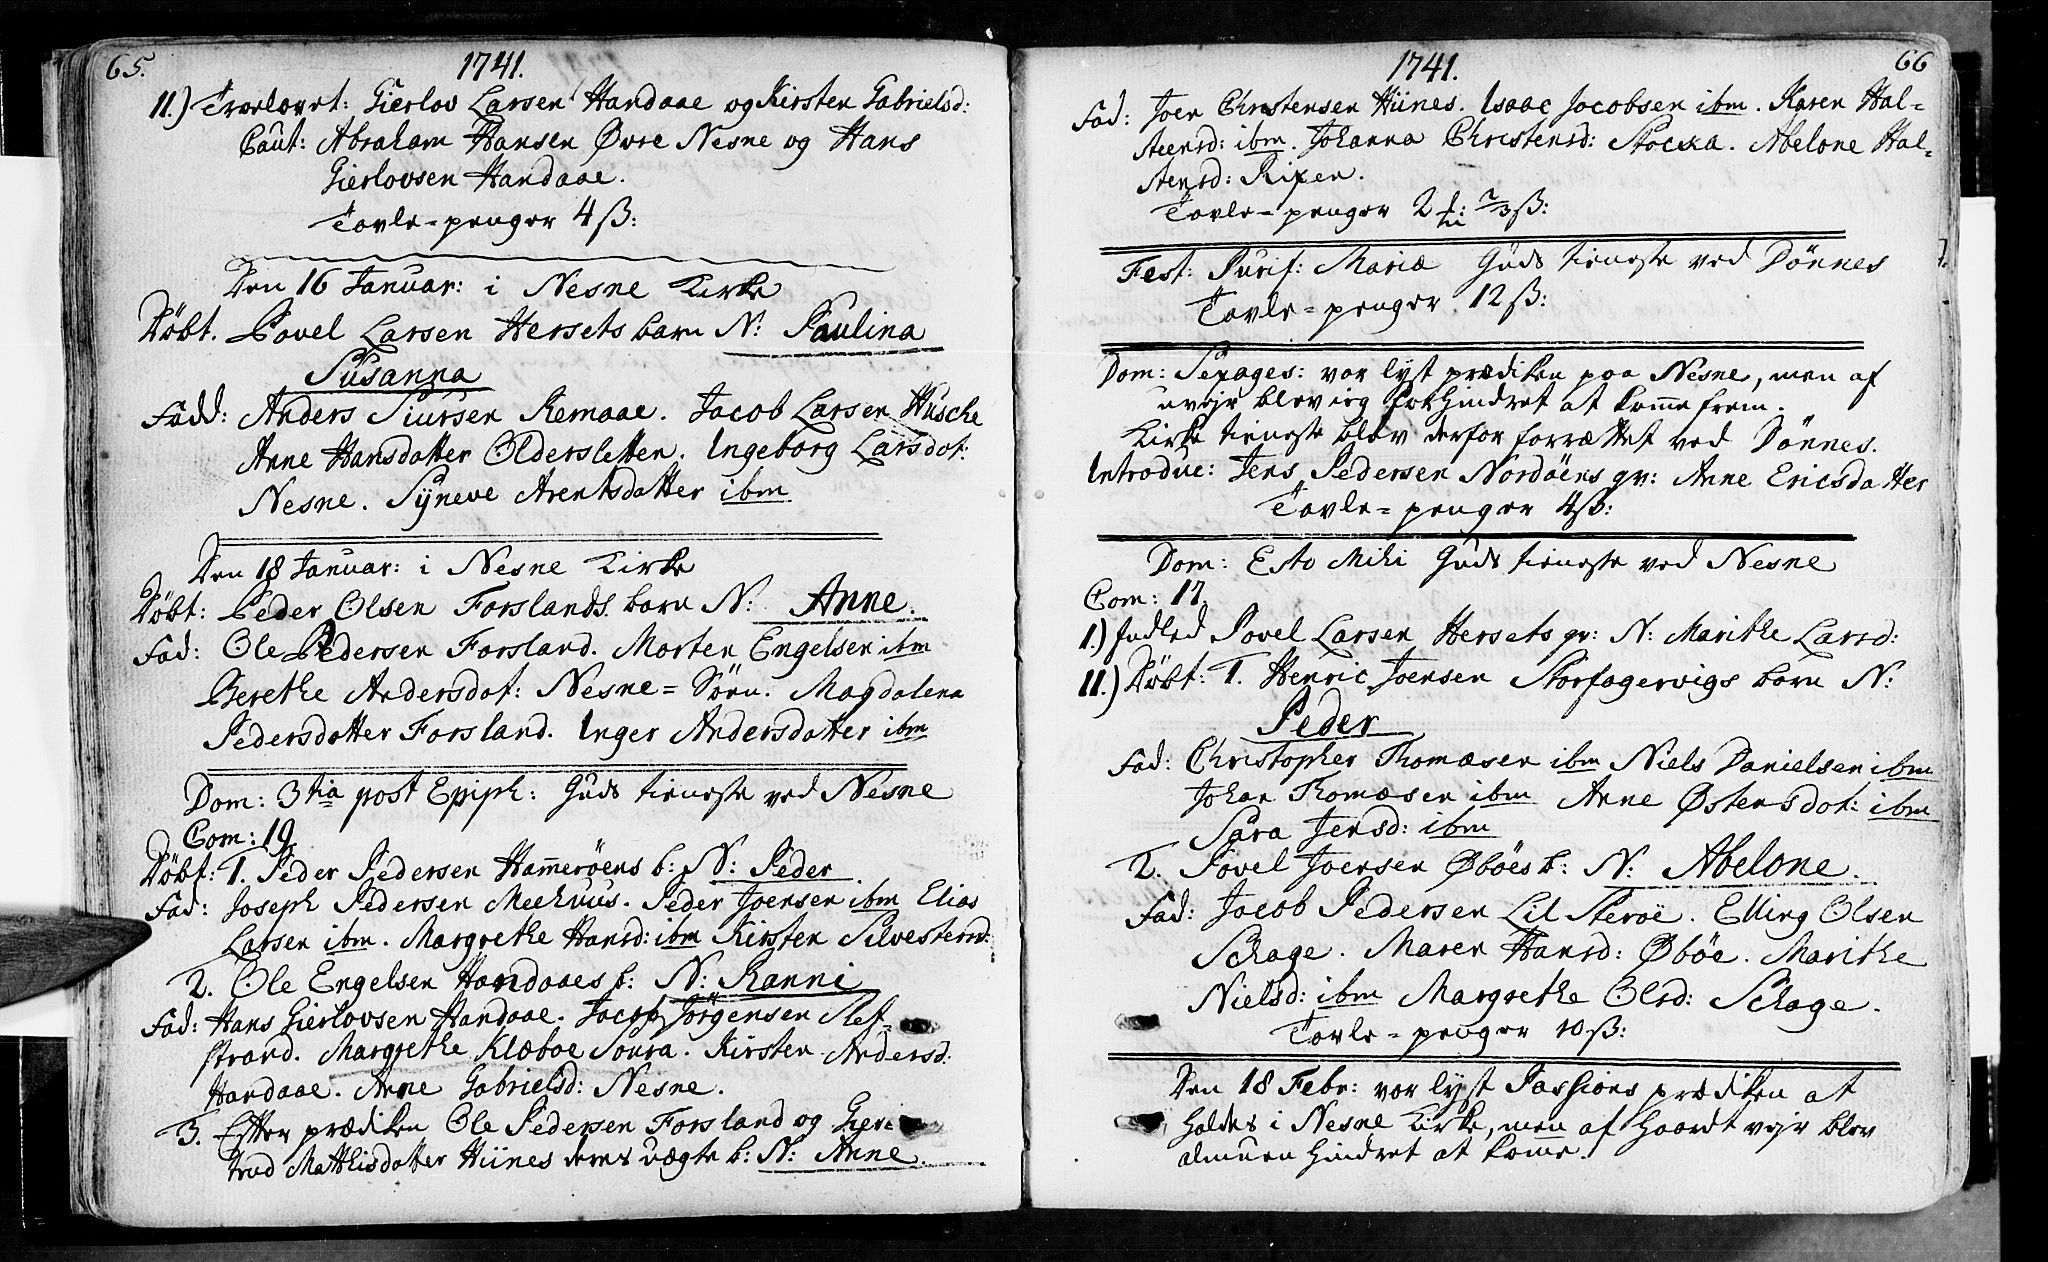 65.
1741.
11.) Troelovet: Gierlov Larsen Handaae og Kirsten Gabrielsd:
Caut: Abraham Hansen Øvre Nesne og Hans
Gierlovsen Handaae.
Tavle-penger 4 ß:
Den 16 Januar: i Nesne Kirke
Döbt. Povel Larsen Hersets barn N: Paulina
Susanna
Fadd: Anders Siursen Remaae. Jacob Larsen Husche
Anne Hansdatter Oldersletten. Ingeborg Larsdot:
Nesne. Syneve Arentsdatter ibm
Den 18 Januar: i Nesne Kirke
Döbt: Peder Olsen Forslands barn N: Anne.
Fad: Ole Pedersen Forsland. Morten Engelsen ibm
Berethe Andersdot: Nesne=Sörn. Magdalena
Pedersdotter Forsland. Inger Andersdotter ibm
Dom: 3tia post Epiph: Guds tieneste ved Nesne
Com: 19.
Döbt: 1. Peder Pedersen Hameröens b: N: Peder
Fad: Joseph Pedersen Meehuus. Peder Joensen ibm Elias
Larsen ibm. Margrethe Hansd: ibm Kirsten Silvestersd:
2. Ole Engelsen Handaaes b: N: Ranni
Fad: Hans Gierlovsen Handaae. Jacob Jörgensen Slet-
strand. Margrethe Klæboe Soura. Kirsten Andersd:
Handaae. Anne Gabrielsd: Nesne.
3. Efter prædiken Ole Pedersen Forsland og Gier-
trud Matthisdatter Hiines deres uægte b: N: Anne.
1741.
66
Fad: Joen Christensen Hiines. Isaac Jocobsen ibm. Karen Hal-
steensd: ibm. Johanna Christensd: Stocka. Abelone Hal-
stensd: Rixen.
Tavle-penger 2 ß:
Fest: Purif: Mariæ Guds tieneste ved Dönnes
Tavle-penger 12 ß:
Dom: Sexages: var lyst prædiken paa Nesne, men af
uvejr blev ieg forhindret at komme frem.
Kirke tieneste blev derfor forrættet ved Dönnes.
Introduc: Jens Pedersen Nordöens qv: Anne Ericsdatter
Tavle-penger 4 ß:
Dom: Esto Mihi Guds tieneste ved Nesne
Com: 17.
1.) Indled Povel Larsen Hersets qv: N: Marithe Larsd:
11.) Döbt: 1. Henric Joensen Storfagervigs barn N:
Peder
Fad: Christopher Thomæsen ibm Niels Danielsen ibm
Johan Thomæsen ibm Anne Østensdot: ibm
Sara Jensd: ibm
2. Povel Joensen Øböes b: N: Abelone.
Fad: Jacob Pedersen Lil Steröe. Elling Olsen
Schage. Maren Hansd: Øböe. Marithe
Nielsd: ibm Margrethe Olsd: Schage.
Tavle-penger 10 ß:
Den 18 Febr: var lyst Passions prædiken at
holdes i Nesne Kirke, men af haardt vejr blev
almuen hindret at komme.